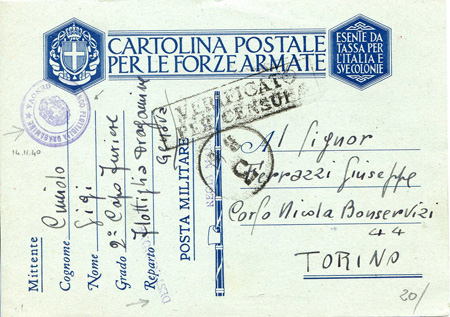 CARTOLINA POSTALE
PER LE FORZE ARMATE
ESENTE DA
TASSA PER
L'ITALIA E
SVE COLONIE
VERIFICATO
PER CENSURA
14.11.40
Mittente
Cognome
Nome Gigi
Grado 2° Capo Furiere
Reparto Flottiglia Dragamine
Genova
POSTA MILITARE
Al Signor
Ferrazzi Giuseppe
Corso Nicola Bonservizi
44
TORINO
20/